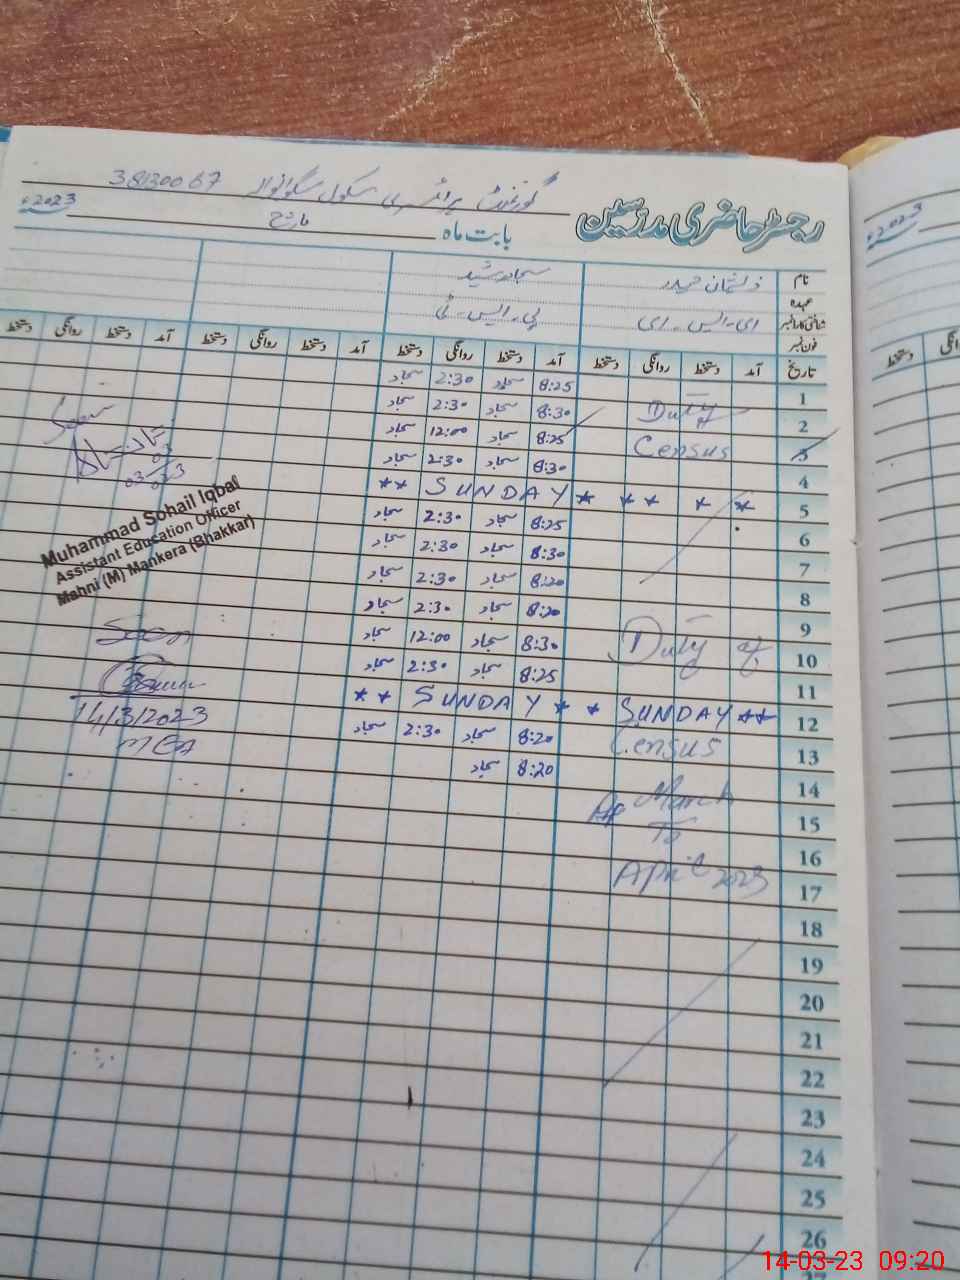 گورنمنٹ پرائمری سکول 38130067
رجسٹر حاضری مدرسین
بابت ماہ مارچ 2023ء
نام
سجاد رشید
عہدہ
ای۔ایس۔ای
پی۔ایس۔ٹی
شناختی کارڈ نمبر
فون نمبر
تاریخ آمد دستخط روانگی دستخط آمد دستخط روانگی دستخط آمد دستخط روانگی دستخط آمد دستخط روانگی دستخط
1 8:25 سجاد 2:30 سجاد
2 Duty 8:30 سجاد 2:30 سجاد
3 Census 8:25 سجاد 12:00 سجاد
4 8:30 سجاد 2:30 سجاد
5 ** SUNDAY * ** * *
6 8:25 سجاد 2:30 سجاد
7 8:30 سجاد 2:30 سجاد
8 8:20 سجاد 2:30 سجاد
9 8:20 سجاد 2:30 سجاد
10 Duty of 8:30 سجاد 12:00 سجاد
11 8:25 سجاد 2:30 سجاد
12 ** SUNDAY * * SUNDAY **
13 Census 8:20 سجاد 2:30 سجاد
14 8:20 سجاد
15 March
16 To
17 April 2023
18
19
20
21
22
23
24
25
26
27
Seen
03
03-023
Muhammad Sohail Iqbal
Assistant Education Officer
Mahni (M) Mankera (Bhakkar)
Seen
14/3/2023
MEA
2023ء
دستخط
14-03-23 09:20